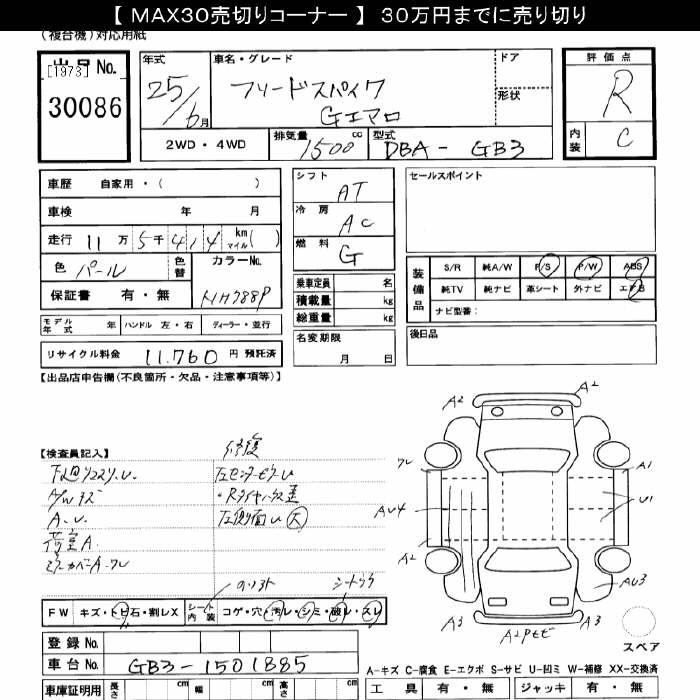 【 MAX30売切りコーナー 】 30万円までに売り切り
(複合機)対応用紙
出品No.
[1973]
30086
年式
25/6月
車名・グレード
フリードスパイク
Gエアロ
ドア
形状
2WD・4WD
排気量
1500 cc
型式
DBA- GB3
評価点
R
内装
C
車歴 自家用・( )
車検 年 月
走行 11万5千414 km マイル( )
色 パール
色替
カラーNo.
NH788P
保証書 有・無
モデル年式 年
ハンドル 左・右
ディーラー・並行
リサイクル料金 11.760 円 預託済
シフト
AT
冷房
AC
燃料
G
乗車定員 名
積載量 kg
総重量 kg
名変期限
月 日
セールスポイント
装備品
S/R 純A/W P/S P/W ABS
純TV 純ナビ 革シート 外ナビ エアB
ナビ型番:
後日品
【出品店申告欄(不良箇所・欠品・注意事項等)】
【検査員記入】
A/Wキズ
A.U.
荷室A.
ミラーカバーA.ワレ
修復
左センターピラーU
左側面U大
シートスレ
FW キズ・トビ石・割レX
シート内装
コゲ・穴・汚レ・シミ・破レ・スレ
登録No.
車台No. GB3-1501885
車庫証明用
長さ cm 幅 cm 高さ cm
A2
A2
ワレ
A1
AU4
U1
A2
AU3
A3
A3
スペア
A-キズ C-腐食 E-エクボ S-サビ U-凹ミ W-補修 XX-交換済
工具 有・無 ジャッキ 有・無